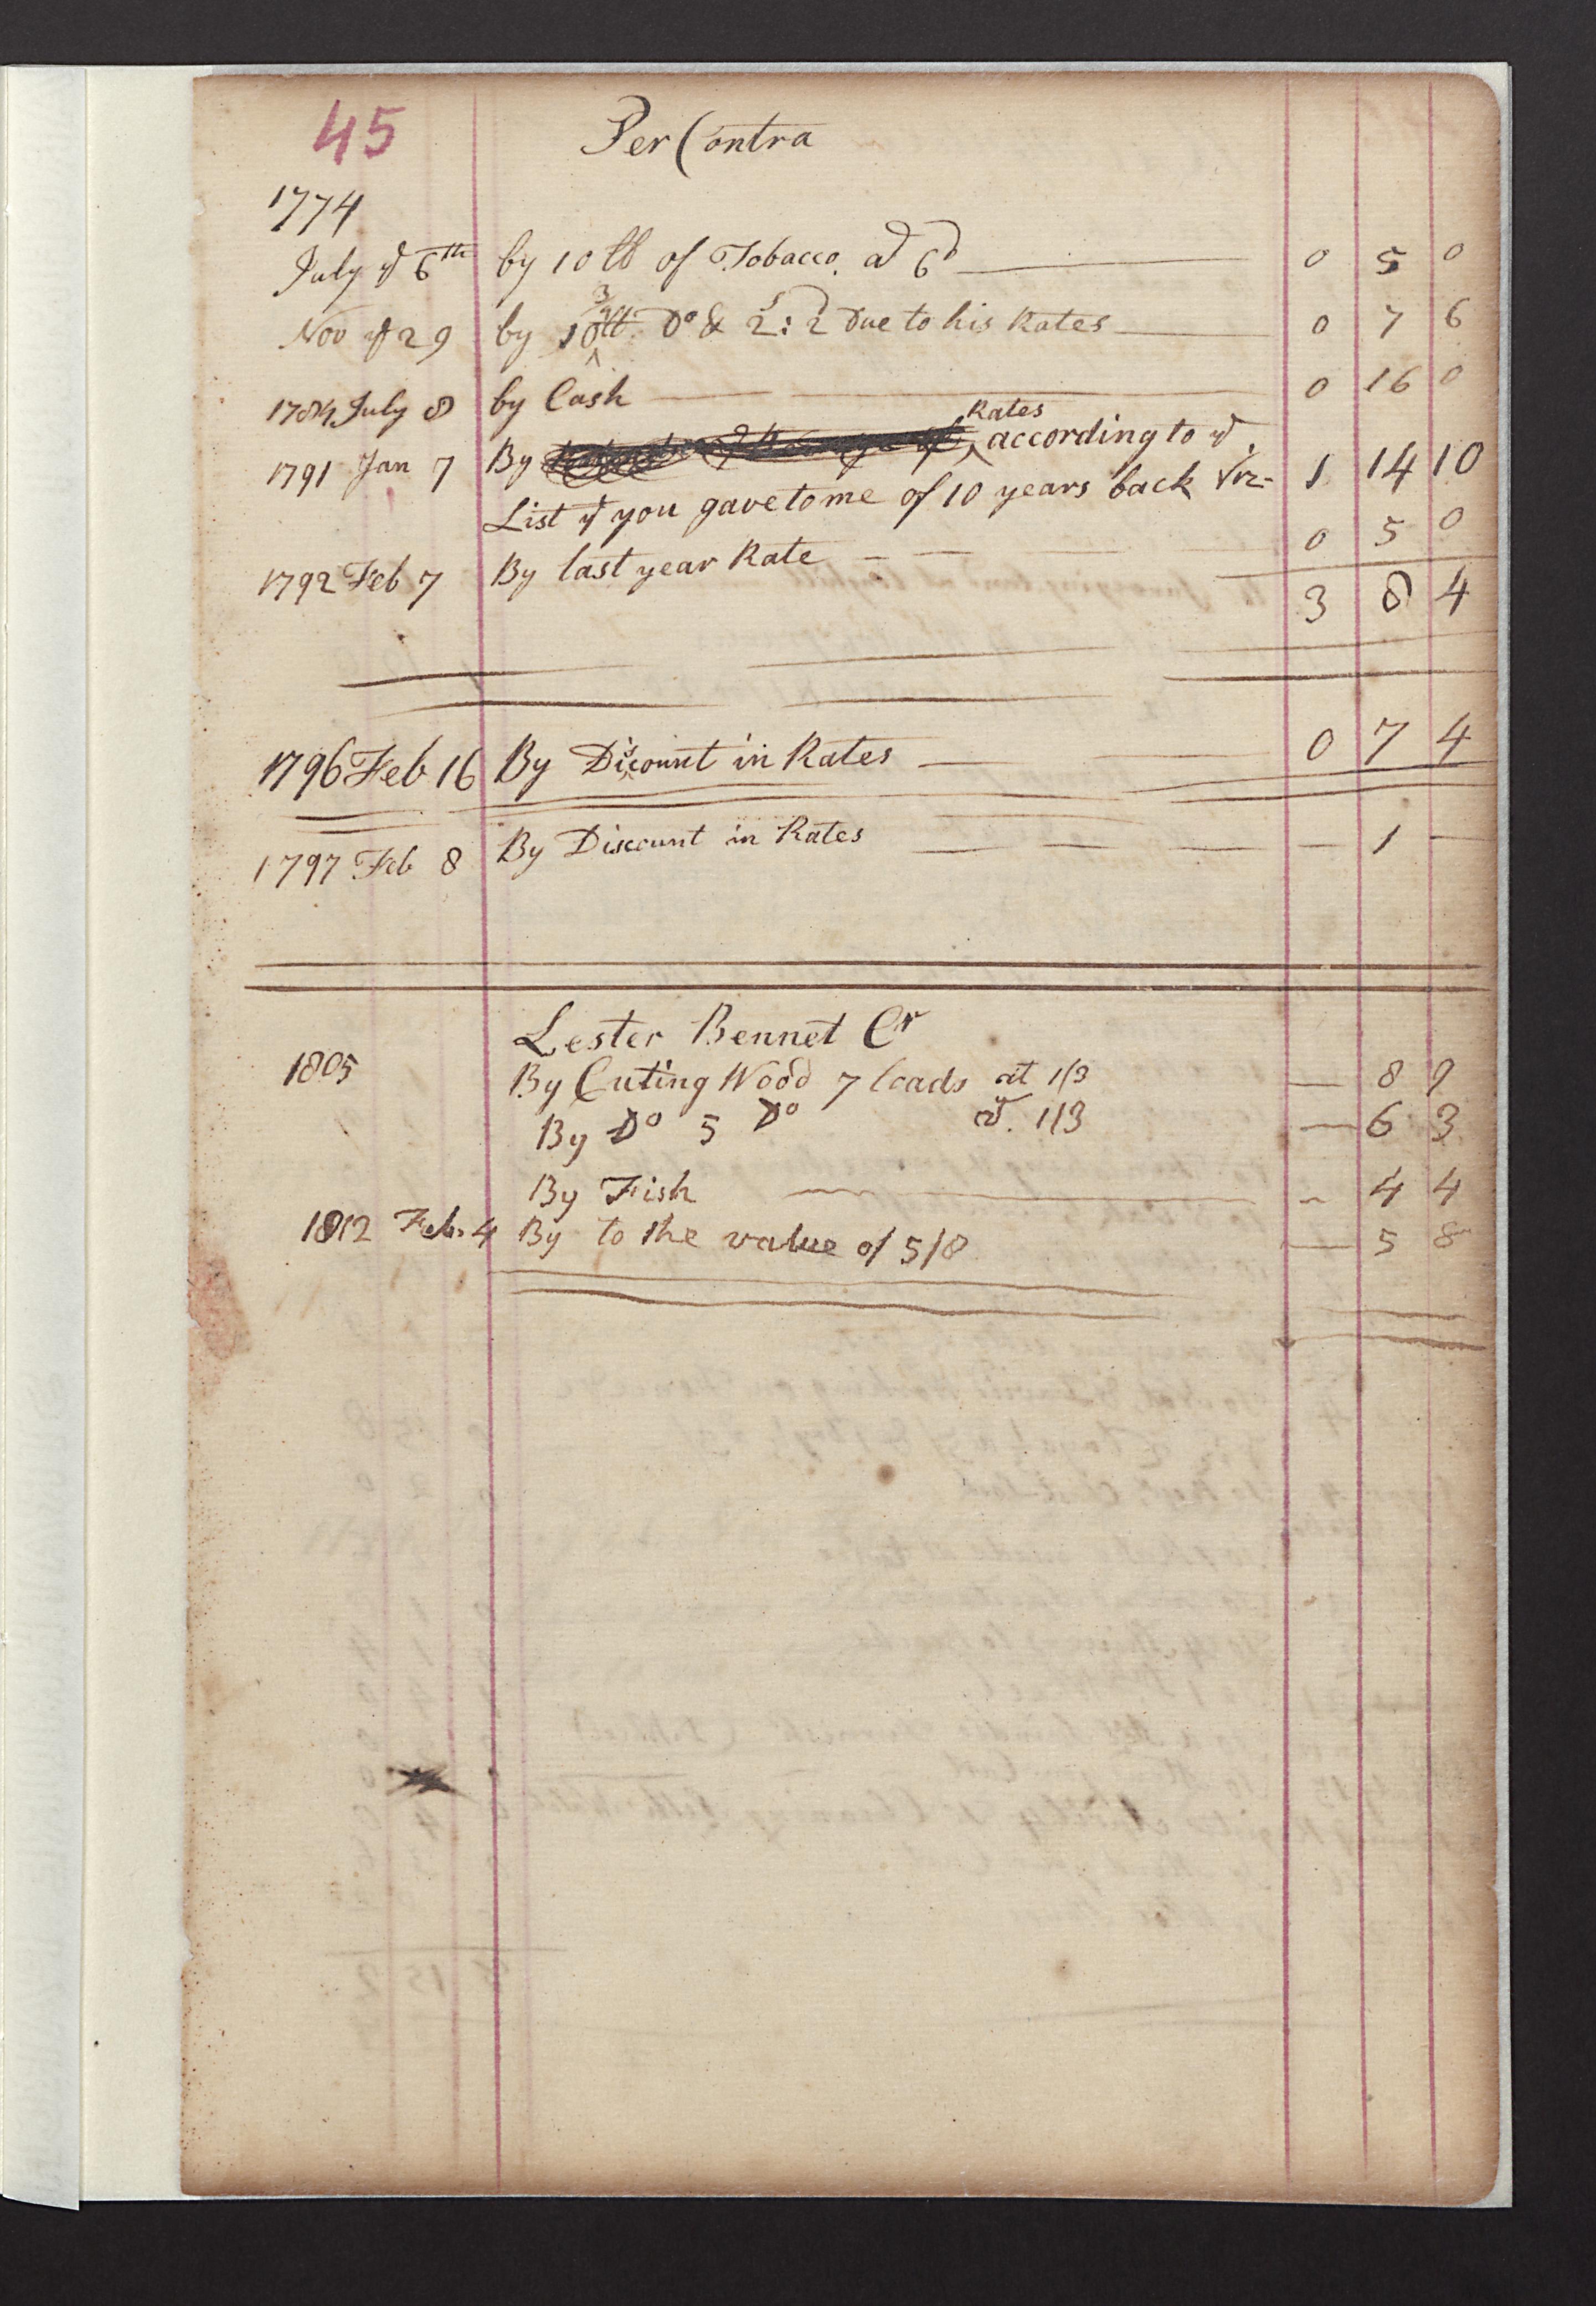 45 Per Contra
1774
July ye 6th by 10 lb of Tobacco at 6d 0 5 0
Nov ye 29 by 10 3/4 lb Do & 2s:2 Due to his Rates 0 7 6
1784 July 8 by Cash 0 16 0
Rates
1791 Jan 7 By according to ye
List yt you gave to me of 10 years back Viz- 1 14 10
1792 Feb 7 By last year Rate 0 5 0
3 8 4
1796 Feb 16 By Discount in Rates 0 7 4
1797 Feb 8 By Discount in Rates — 1 —
Lester Bennet Cr
1805 By Cuting Wood 7 loads at 1/3 — 8 9
By Do 5 Do at 1/3 — 6 3
By Fish — 4 4
1812 Feb. 4 By to the value of 5/8 — 5 8